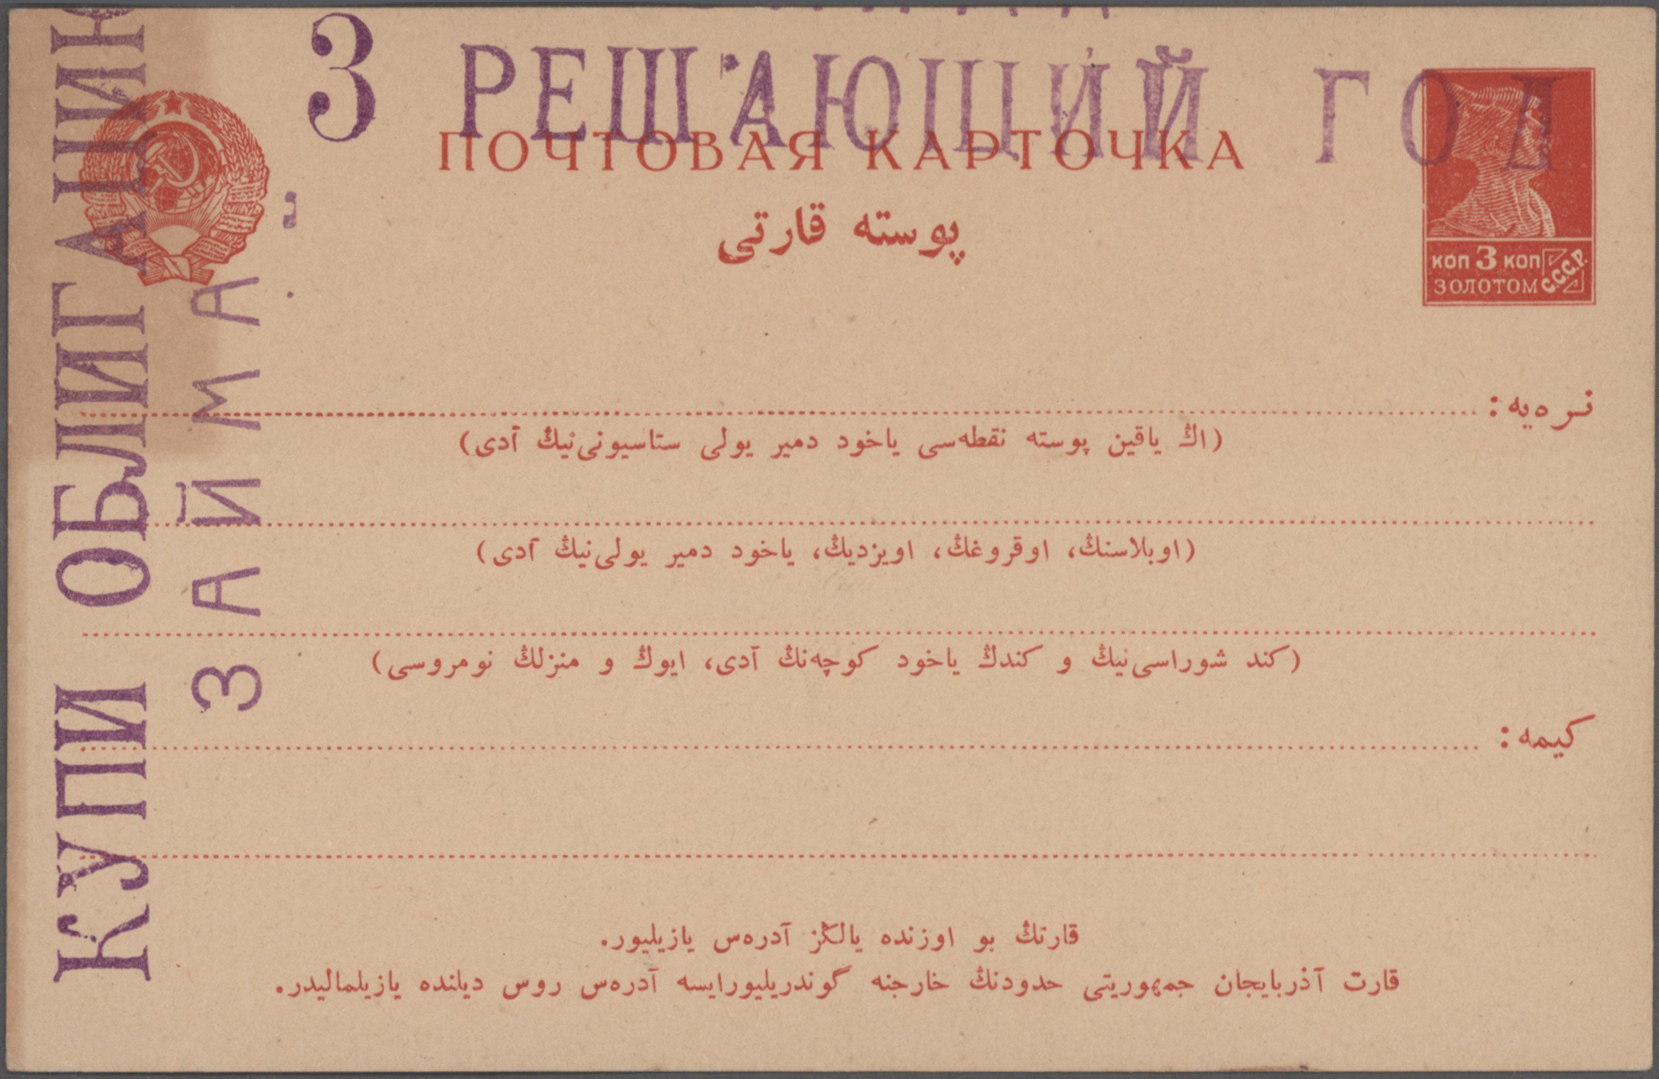 3 РЕШАЮЩИЙ ГОД
ПОЧТОВАЯ КАРТОЧКА
پوسته قارتی
КОП 3 КОП
ЗОЛОТОМ
С.С.С.Р.
КУПИ ОБЛИГАЦИЮ
ЗАЙМА
نره‌یه :
(اڭ یاقین پوسته نقطه‌سی یاخود دمیر یولی ستاسیونی‌نیڭ آدی)
(اوبلاسنڭ، اوقروغڭ، اویزدیڭ، یاخود دمیر یولی‌نیڭ آدی)
(کند شوراسی‌نیڭ و کندڭ یاخود کوچه‌نڭ آدی، ایوڭ و منزلڭ نومروسی)
کیمه :
قارتڭ بو اوزنده یالڭز آدره‌س یازیلیور.
قارت آذربایجان جمهوریتی حدودنڭ خارجنه گوندریلیورایسه آدره‌س روس دیلنده یازیلمالیدر.